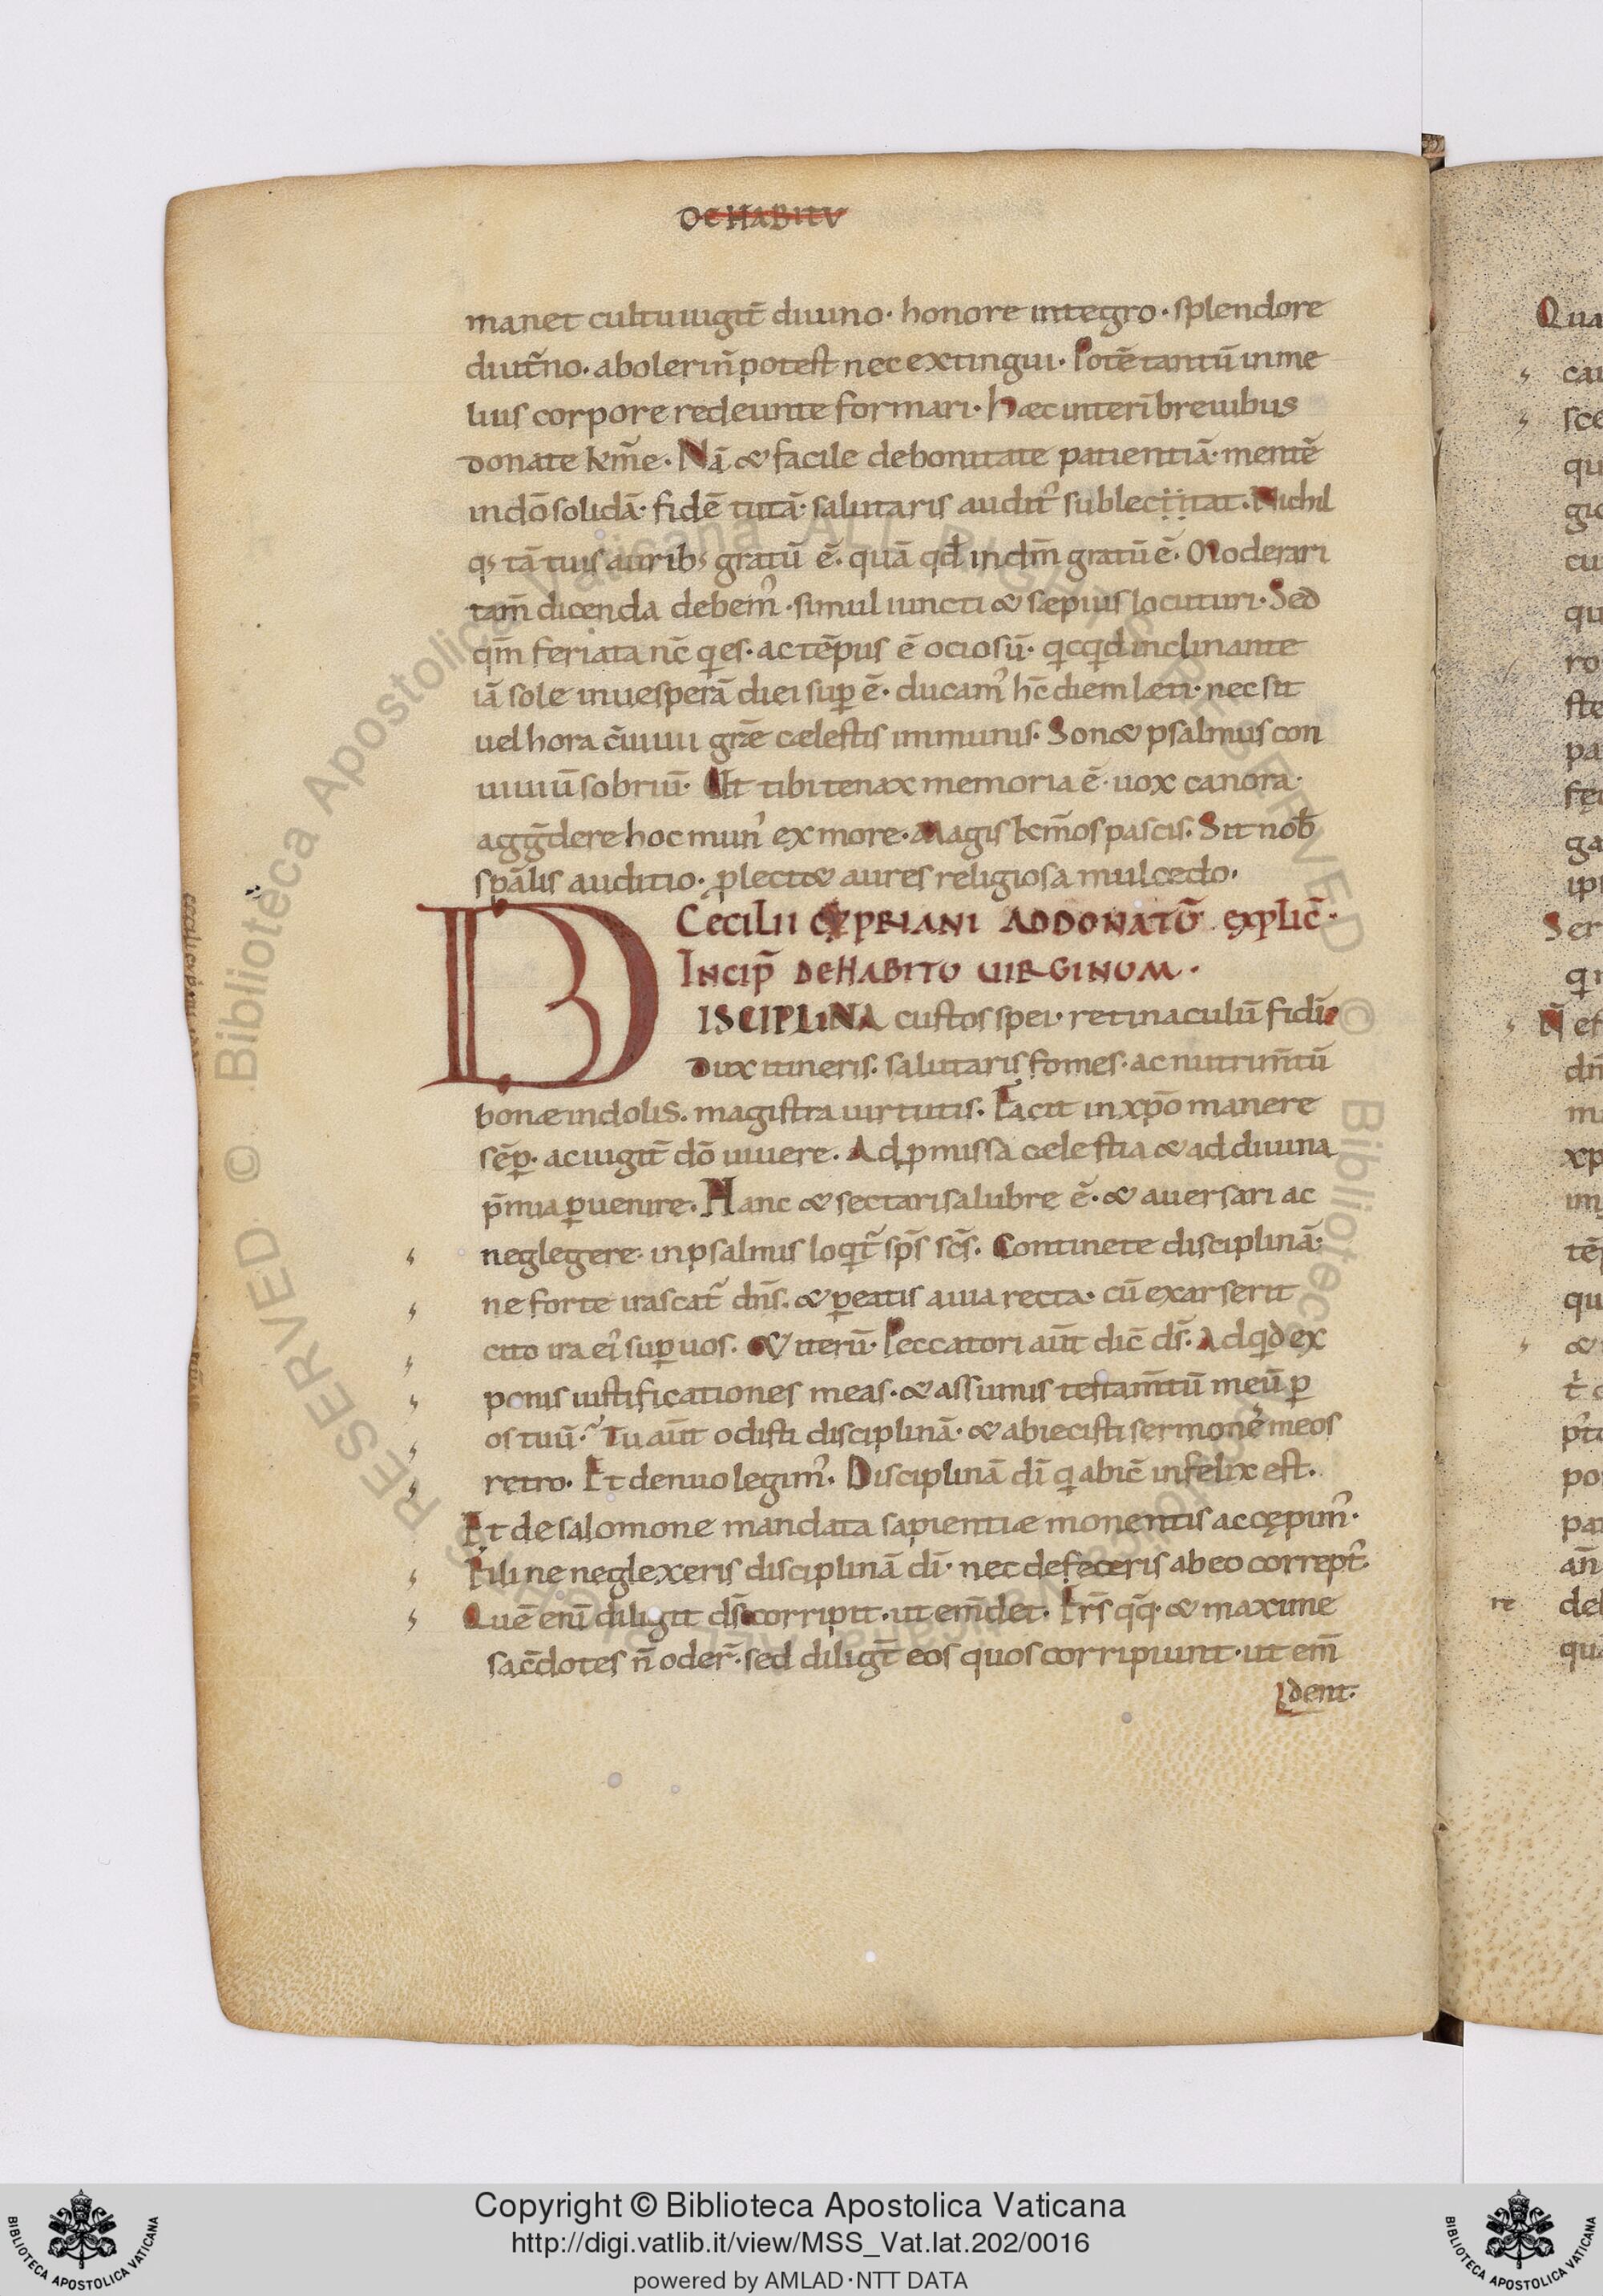 DE HABITV
manet cultu iugit̄ diuino· honore integro· splendore
diut̄no· aboleri n̄ potest nec extingui· Potē tantū in me
lius corpore redeunte formari· Hæc interī breuibus
donate km̄e· Nā & facile de bonitate patientiā· mentē
in dō solidā· fidē tutā· salutaris audit᷒ sublectitat· Nichil
q; tā tuis aurib; gratū ē· quā qd̄ in dm̄ gratū ē· Moderari
tam̄ dicenda debem᷒· simul iuncti & sæpius locuturi· Sed
qm̄ feriata nc̄ q̇es· ac tēpus ē ociosū· q̇cq̇d inclinante
iā sole in uesperā diei suꝑ ē· ducam᷒ hc̄ diem læti· nec sit
uel hora c̄uiuii grāe cælestis immunis· Son& psalmus con
uiuiū sobriū· Ut tibi tenax memoria ē· uox canora·
aggr̄dere hoc mun᷒ ex more· Magis km̄os pascis· Sit nob̄
spālis auditio· ꝓlect& aures religiosa mulcedo·
CECILII CYPRIANI AD DONATŪ EXPLIC̄·
INCIP̄ DE HABITO UIRGINUM·
DISCIPLINA custos spei· retinaculū fidei
Dux itineris· salutaris fomes· ac nutrim̄tū
bonæ indolis· magistra uirtutis· Facit in xp̄o manere
sēꝑ· ac iugit̄ dō uiuere· Ad ꝓmissa celestia & ad diuina
p̄mia ꝑuenire· Hanc & sectari salubre ē· & auersari ac
neglegere· in psalmis loqit̄ sp̄s sc̄s· Continete disciplinā·
ne forte irascat̄ dn̄s· & ꝑeatis a uia recta· cū exarserit
cito ira ei᷒ suꝑ uos· & iterū· Peccatori aūt dic̄ ds̄· Ad qd ex
ponis iustificationes meas· & assumis testam̄tū meū ꝑ
os tuū· Tu aūt odisti disciplinā· & abiecisti sermonē meos
retro· Et denuo legim᷒· Disciplinā dī q̇ abic̄ infelix est·
Et de salomone mandata sapientiæ monentis accępim᷒·
Fili ne neglexeris disciplinā dī· nec defeceris ab eo corrept᷒·
Quē enī diligit ds̄ corripit· ut em̄det· Frs̄ q̄q̄· & maxime
sac̄dotes n̄ oder̄· sed diligt̄ eos quos corripiunt· ut em̄
dent·
Copyright © Biblioteca Apostolica Vaticana
http://digi.vatlib.it/view/MSS_Vat.lat.202/0016
powered by AMLAD·NTT DATA